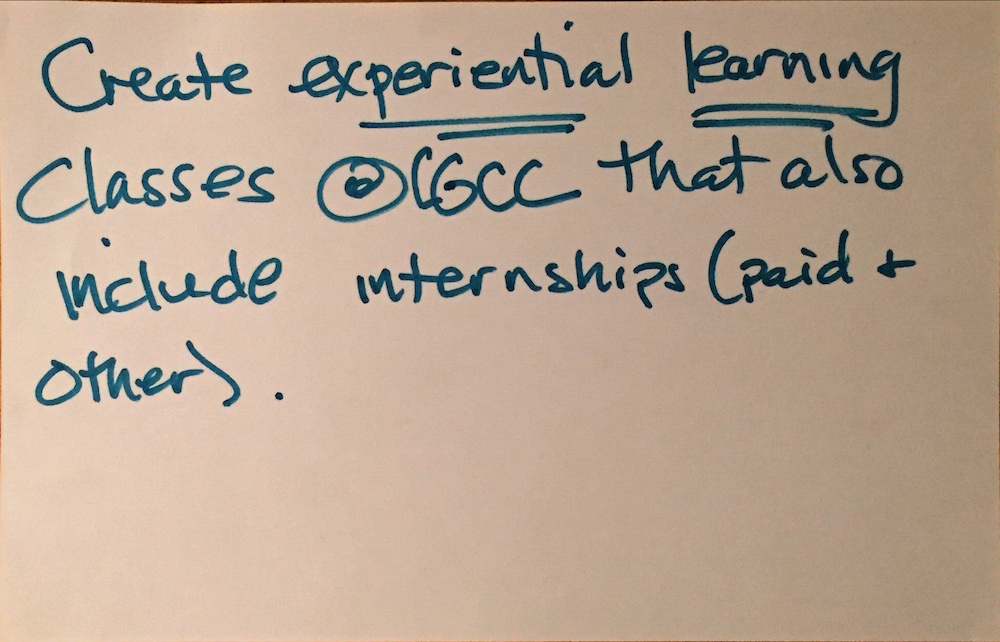 Create experiential learning
Classes @CGCC that also
include internships (paid +
other).